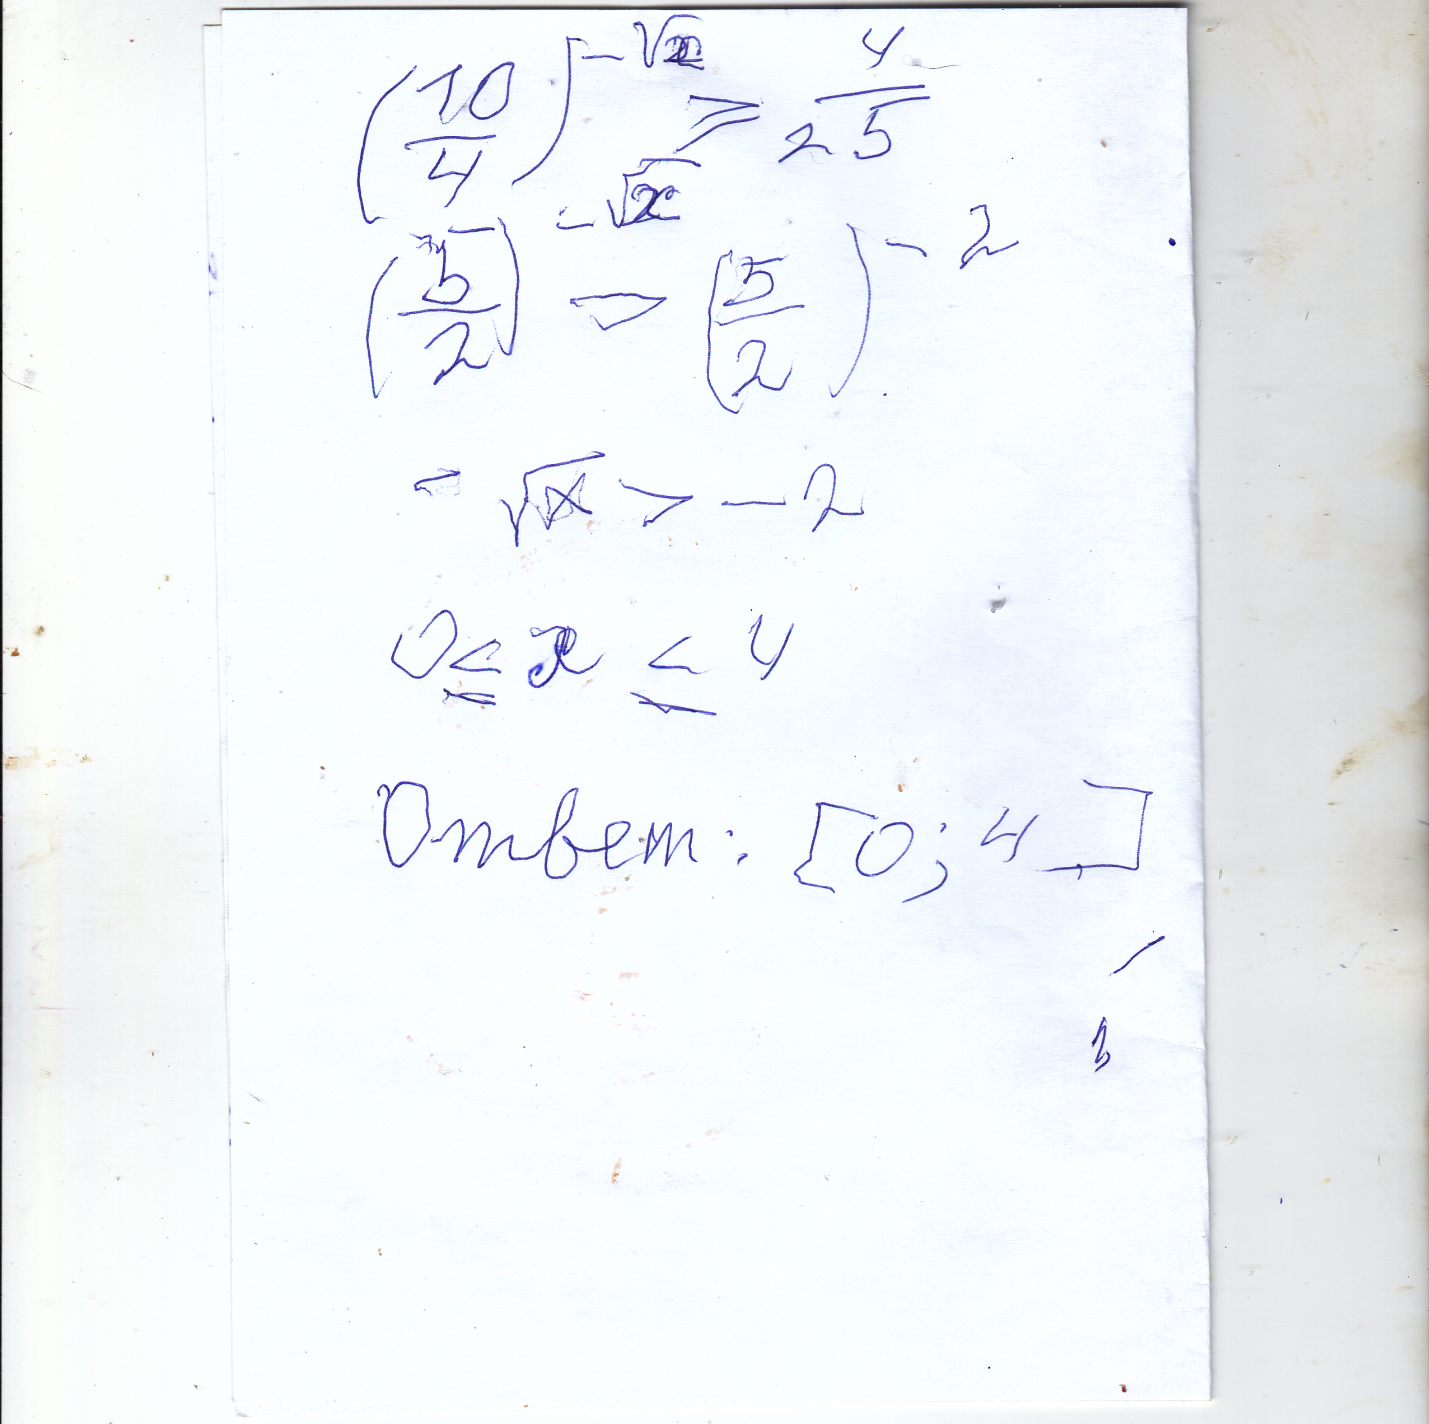 (10/4)^-√x ≥ 4/25
(5/2)^-√x > (5/2)^-2
- √x > - 2
0 ≤ x ≤ 4
Ответ: [0; 4]